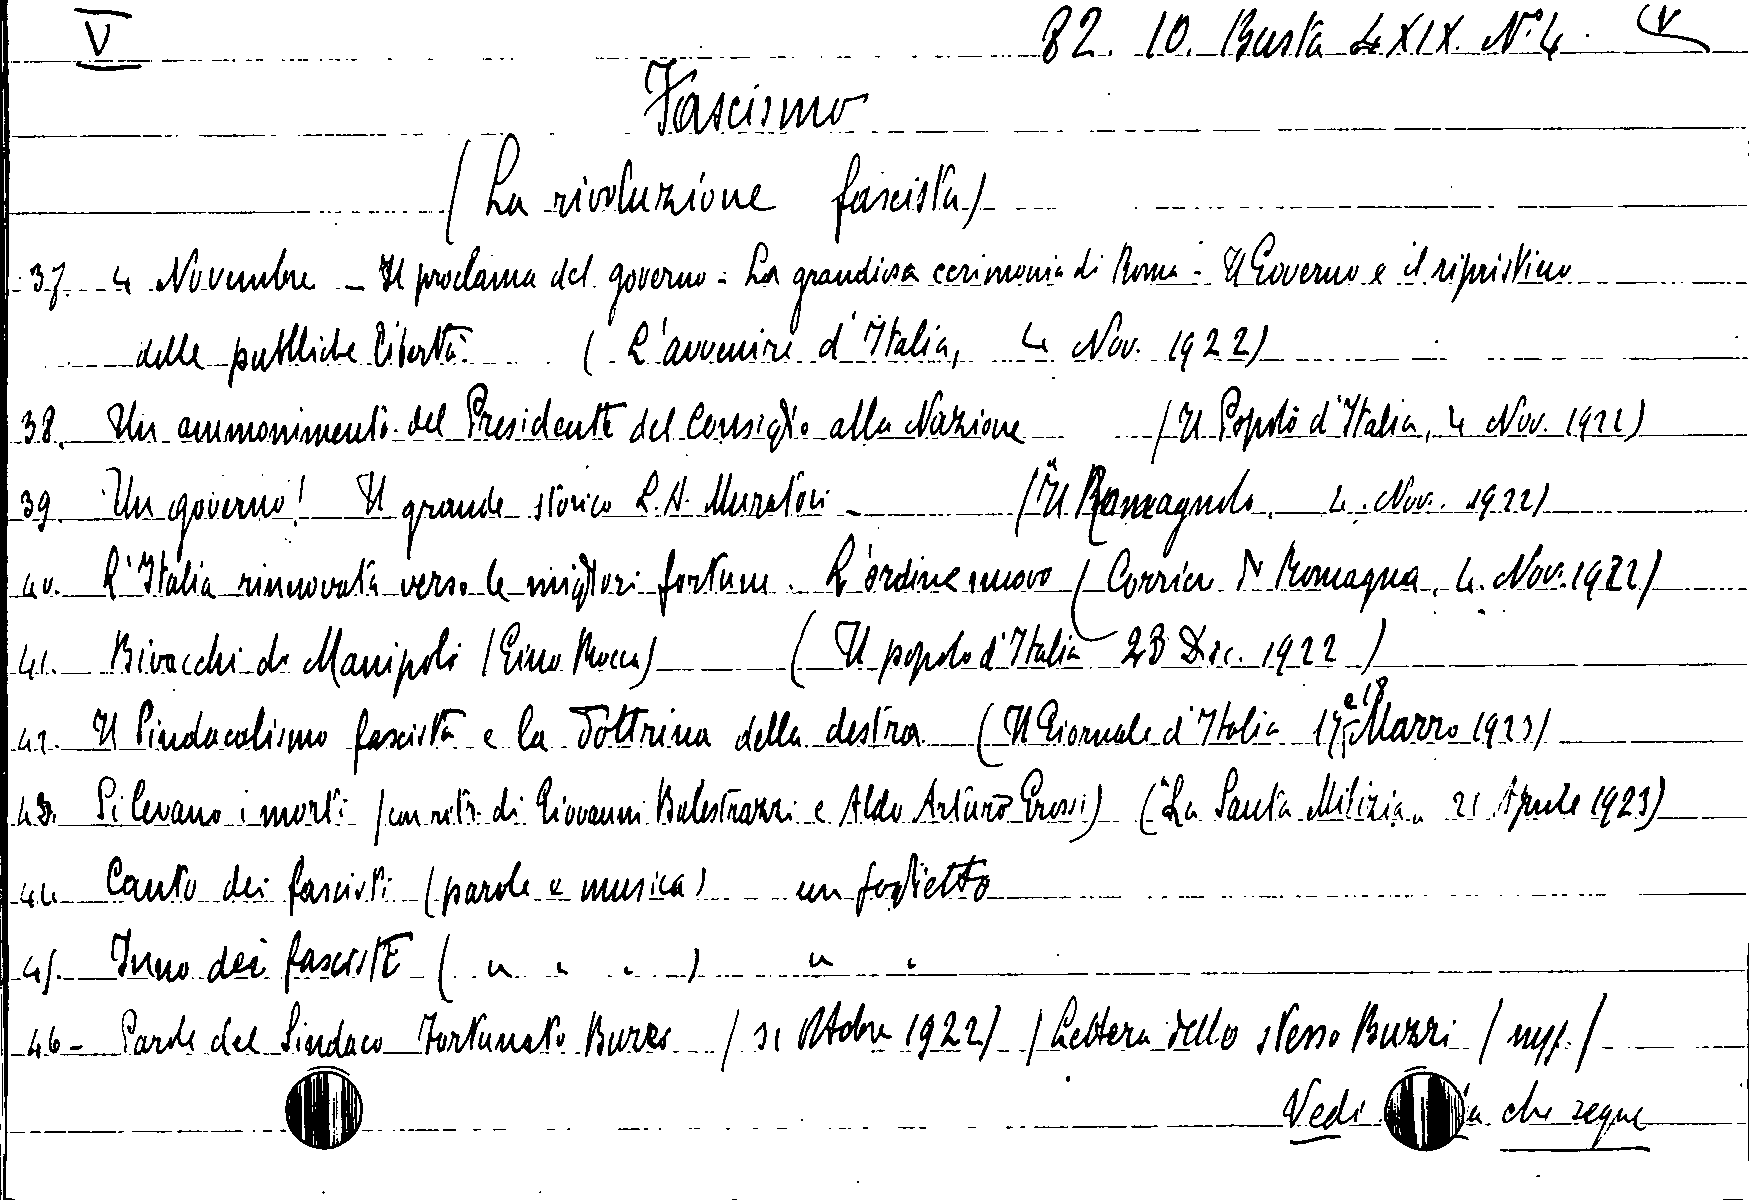 V 82. 10. Busta LXIX. N. 4. V
Fascismo
(La rivoluzione fascista)
37. 4 Novembre - Il proclama del governo - La grandiosa cerimonia di Roma - Il Governo e il ripristino
delle pubbliche libertà. (L'avvenire d'Italia, 4 Nov. 1922)
38. Un ammonimento del Presidente del Consiglio alla Nazione (Il Popolo d'Italia, 4 Nov. 1922)
39. Un governo! Il grande storico L. A. Muratori - (Il Romagnolo, 4. Nov. 1922)
40. L'Italia rinnovata verso le migliori fortune. L'ordine nuovo (Corrier di Romagna, 4. Nov. 1922)
41. Bivacchi di Manipoli (Gino Rocca) (Il popolo d'Italia 23 Dic. 1922)
42. Il Sindacalismo fascista e la Dottrina della destra (Il Giornale d'Italia 17 e 18 Marzo 1923)
43. Si levano i morti (con ritr. di Giovanni Balestrazzi e Aldo Arturo Grossi) ("La Santa Milizia" 21 Aprile 1923)
44. Canto dei fascisti (parole e musica) un foglietto
45. Inno dei fascisti ( " " " ) " "
46 - Parole del Sindaco Fortunato Buzzi (31 Ottobre 1922) (Lettera dello stesso Buzzi)
Vedi che segue